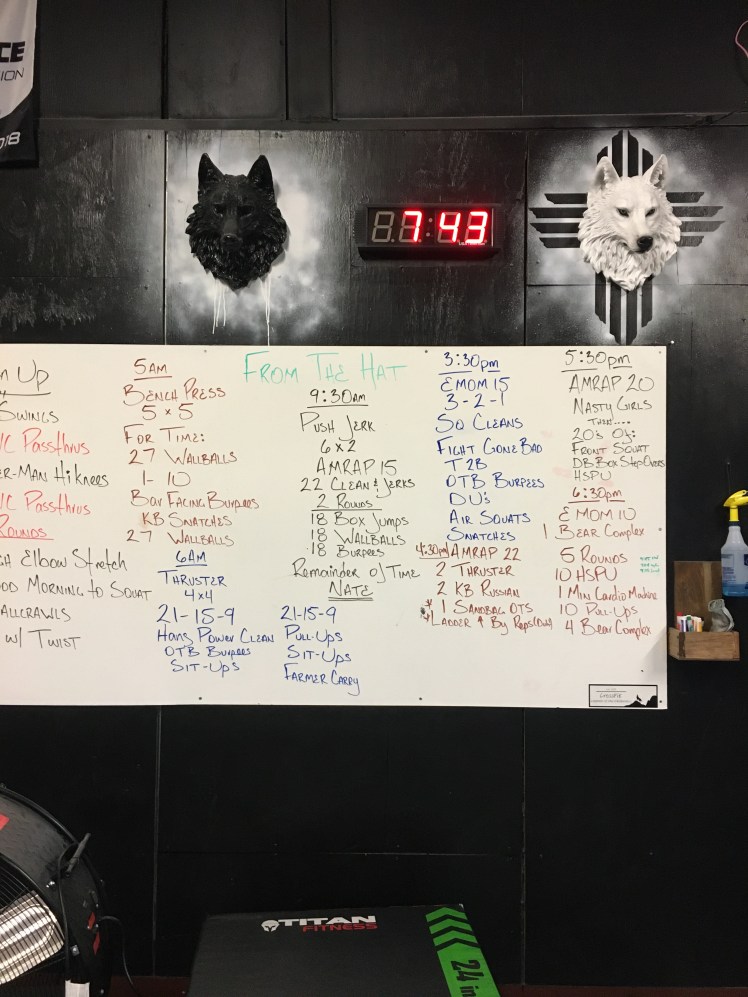 CE
ION
018
7 43
m Up
Swings
VC Passthrus
er-Man Hi knees
VC Passthrus
Rounds
gh Elbow Stretch
ood Morning to Squat
allcrawls
w/ Twist
5am
Bench Press
5 x 5
For Time:
27 Wallballs
1-10
Bar Facing Burpees
KB Snatches
27 Wallballs
6am
Thruster
4x4
21-15-9
Hang Power Clean
OTB Burpees
Sit-Ups
From The Hat
9:30am
Push Jerk
6 x 2
AMRAP 15
22 Clean & Jerks
2 Rounds
18 Box Jumps
18 Wallballs
18 Burpees
Remainder of Time
Nate
21-15-9
Pull-Ups
Sit-Ups
Farmer Carry
3:30pm
EMOM 15
3-2-1
SQ Cleans
Fight Gone Bad
T2B
OTB Burpees
DU's
Air Squats
Snatches
4:30pm AMRAP 22
2 Thruster
2 KB Russian
1 Sandbag OTS
Ladder By Reps
5:30pm
AMRAP 20
Nasty Girls
Then....
20's Of:
Front Squat
DB Box Step Overs
HSPU
6:30pm
EMOM 10
1 Bear Complex
5 Rounds
10 HSPU
1 Min Cardio Machine
10 Pull-Ups
4 Bear Complex
TITAN
FITNESS
24 in